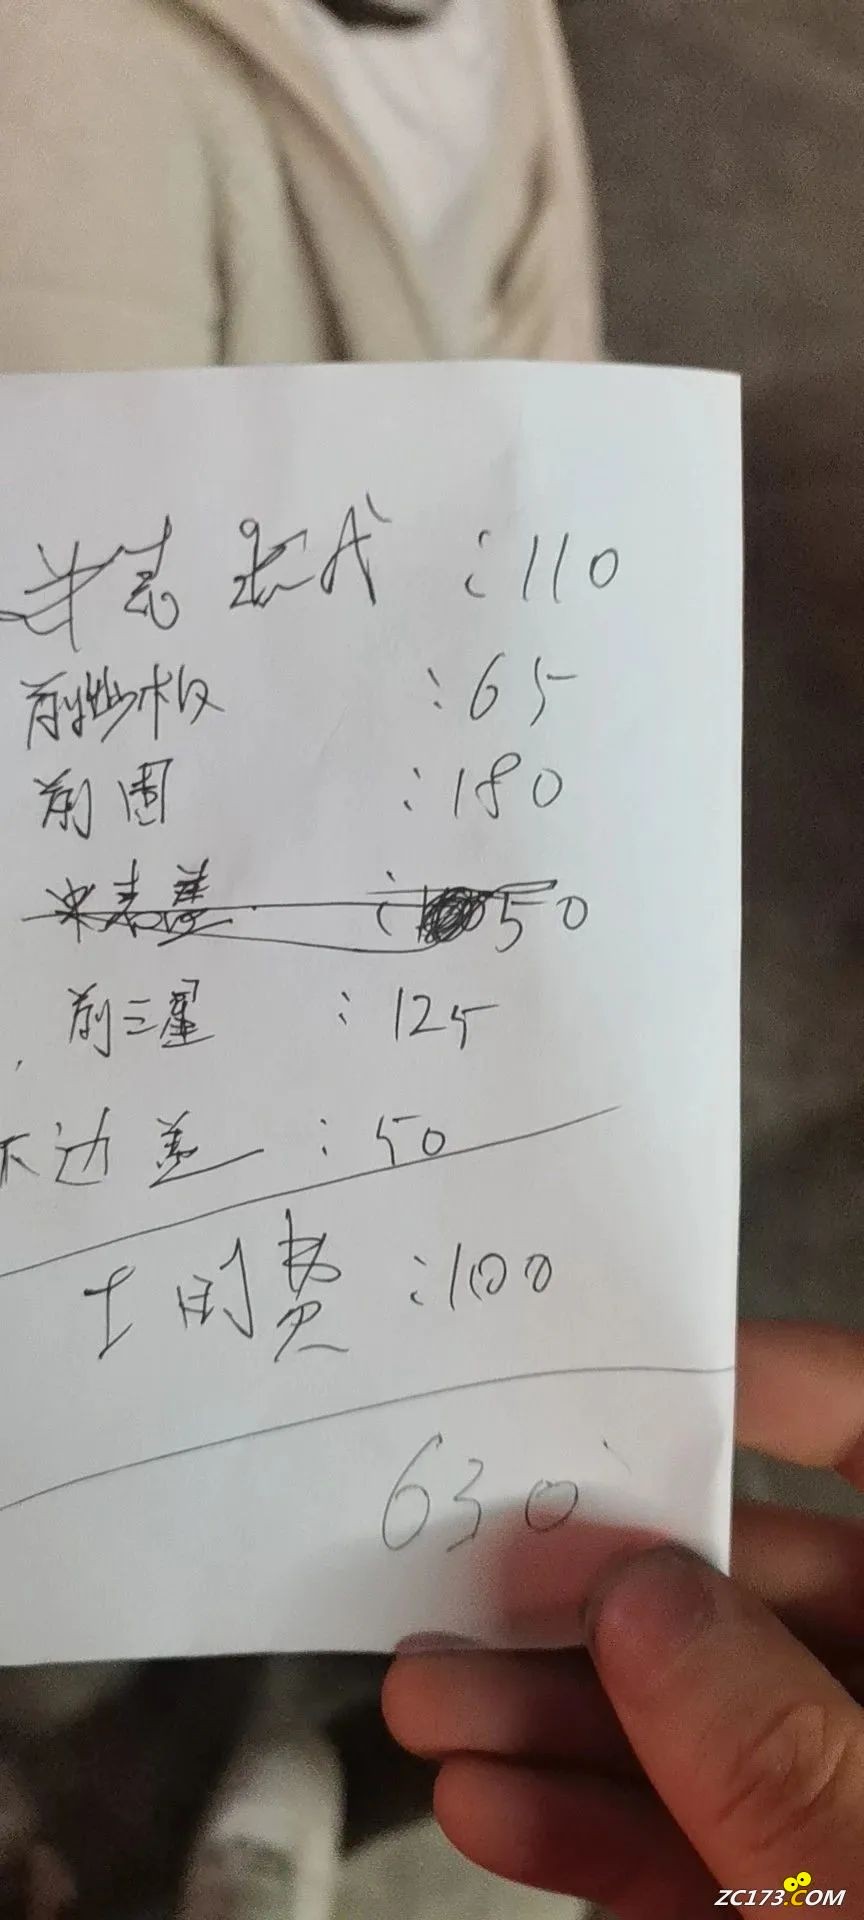 :110
前挡板 :65
前围 :180
:50
前三星 :125
边盖 :50
工时费 :100
630
ZC173.COM